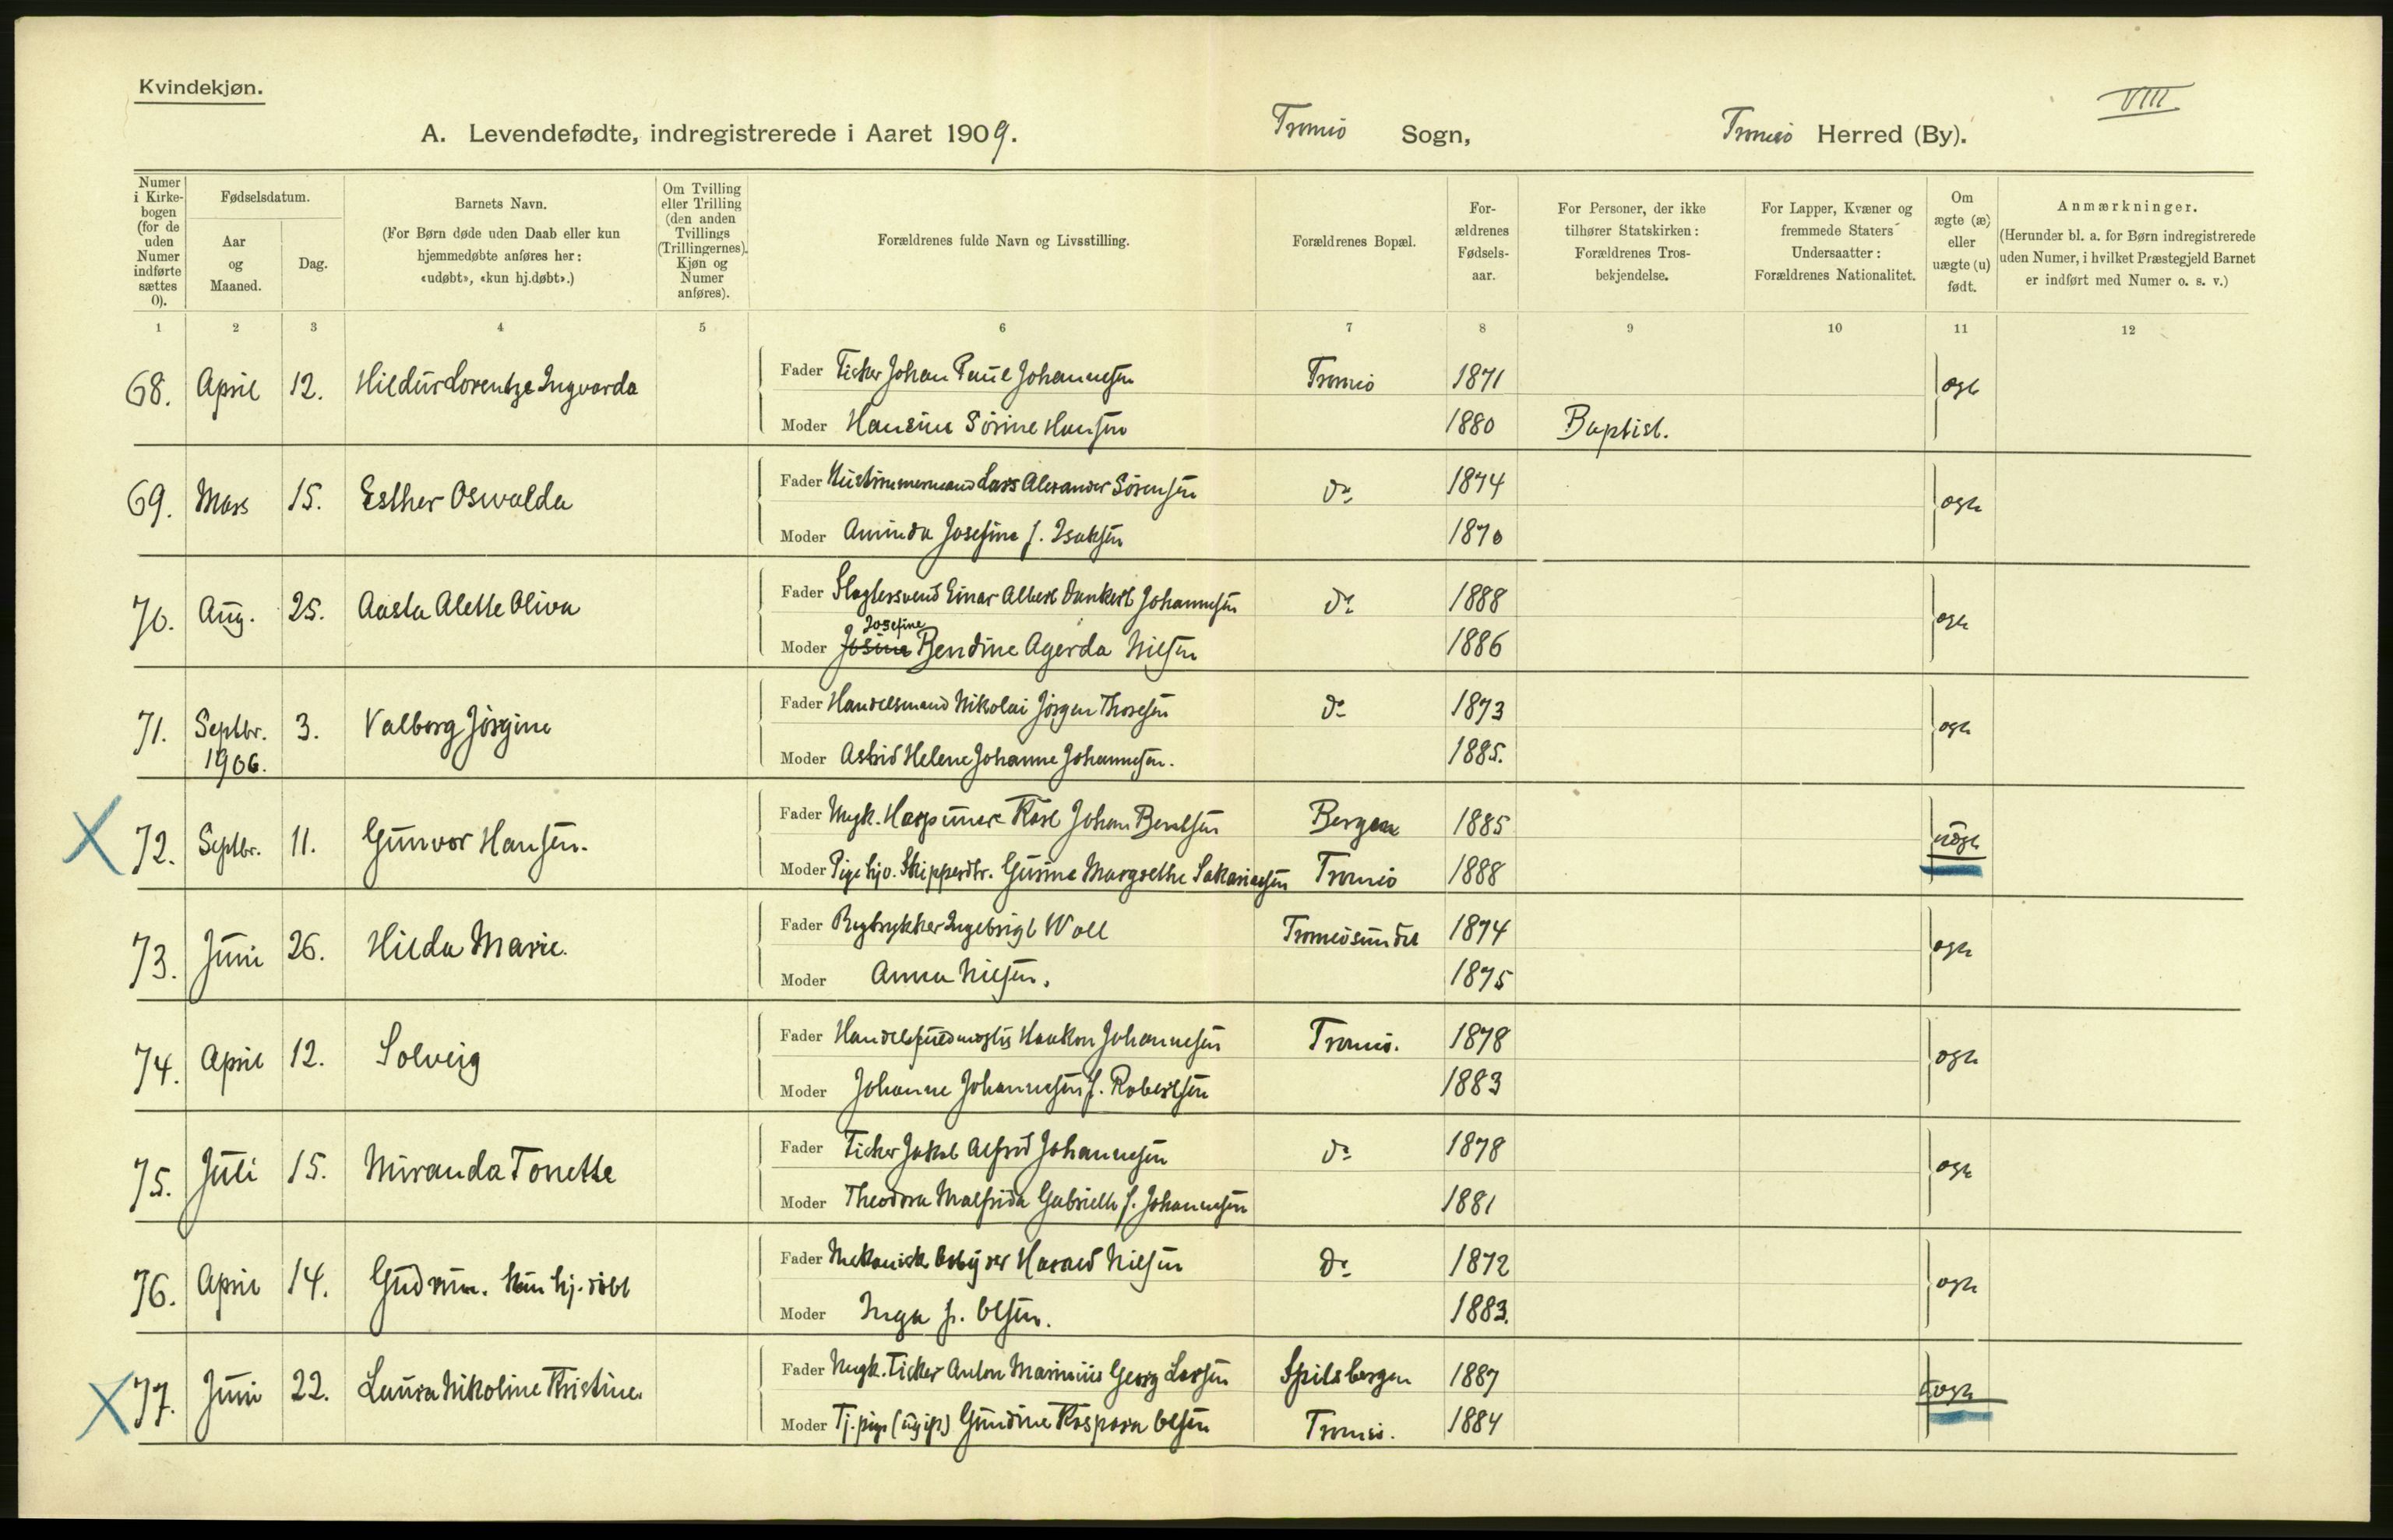 Kvindekjøn.
VIII
A. Levendefødte, indregistrerede i Aaret 1909. Tromsø Sogn, Tromsø Herred (By).
Numer i Kirkebogen (for de uden Numer indførte sættes 0).
Fødselsdatum.
Aar og Maaned.
Dag.
Barnets Navn.
(For Børn døde uden Daab eller kun hjemmedøbte anføres her: «udøbt», «kun hj.døbt».)
Om Tvilling eller Trilling (den anden Tvillings (Trillingernes) Kjøn og Numer anføres).
Forældrenes fulde Navn og Livsstilling.
Forældrenes Bopæl.
Forældrenes Fødselsaar.
For Personer, der ikke tilhører Statskirken: Forældrenes Trosbekjendelse.
For Lapper, Kvæner og fremmede Staters Undersaatter: Forældrenes Nationalitet.
Om ægte (æ) eller uægte (u) født.
Anmærkninger.
(Herunder bl. a. for Børn indregistrerede uden Numer, i hvilket Præstegjeld Barnet er indført med Numer o. s. v.)
1 2 3 4 5 6 7 8 9 10 11 12
68. April 12. Hildur Lorentze Ingvarda Fader Fisker Johan Paul Johannesen Tromsø 1871 ægte
Moder Hansine Sørine Hansen 1880 Baptist.
69. Mars 15. Esther Oswalda Fader Hustømmermand Lars Alexander Sørensen do 1874 ægte
Moder Aminda Josefine f. Isaksen 1870
70. Aug. 25. Aasta Alette Oliva Fader Slagtersvend Einar Albert Dankert Johannesen do 1888 ægte
Josefine
Moder Josine Bendine Agerda Nilsen 1886
71. Septbr. 1906. 3. Valborg Jørgine Fader Handelsmand Nikolai Jørgen Thoresen do 1873 ægte
Moder Astrid Helene Johanne Johannesen. 1885.
72. Septbr. 11. Gunvor Hansen. Fader Ungk. Harpuner Karl Johan Bentsen Bergen 1885 uægte
Moder Pige hjv. Skipperdtr. Gusine Margrethe Sakariassen Tromsø 1888
73. Juni 26. Hilda Marie. Fader Bogtrykker Ingebrigt Woll Tromsøsundet 1874 ægte
Moder Anna Nilsen. 1875
74. April 12. Solveig Fader Handelsfuldmægtig Haakon Johannesen Tromsø. 1878 ægte
Moder Johanne Johannesen f. Robertsen 1883
75. Juli 15. Miranda Tonette Fader Fisker Jakob Alfred Johannesen do 1878 ægte
Moder Theodora Malfrida Gabrielle f. Johannesen 1881
76. April 14. Gudrun. Kun hj. døbt Fader Mekanisk Harald Nilsen do 1872 ægte
Moder Inga f. Olsen. 1883.
77. Juni 22. Laura Nikoline Kristine Fader Ungk. Fisker Anton Marinius Georg Larsen Spitsbergen 1887 uægte
Moder Tj.pige (ugift) Gundine Kaspara Olsen Tromsø. 1884